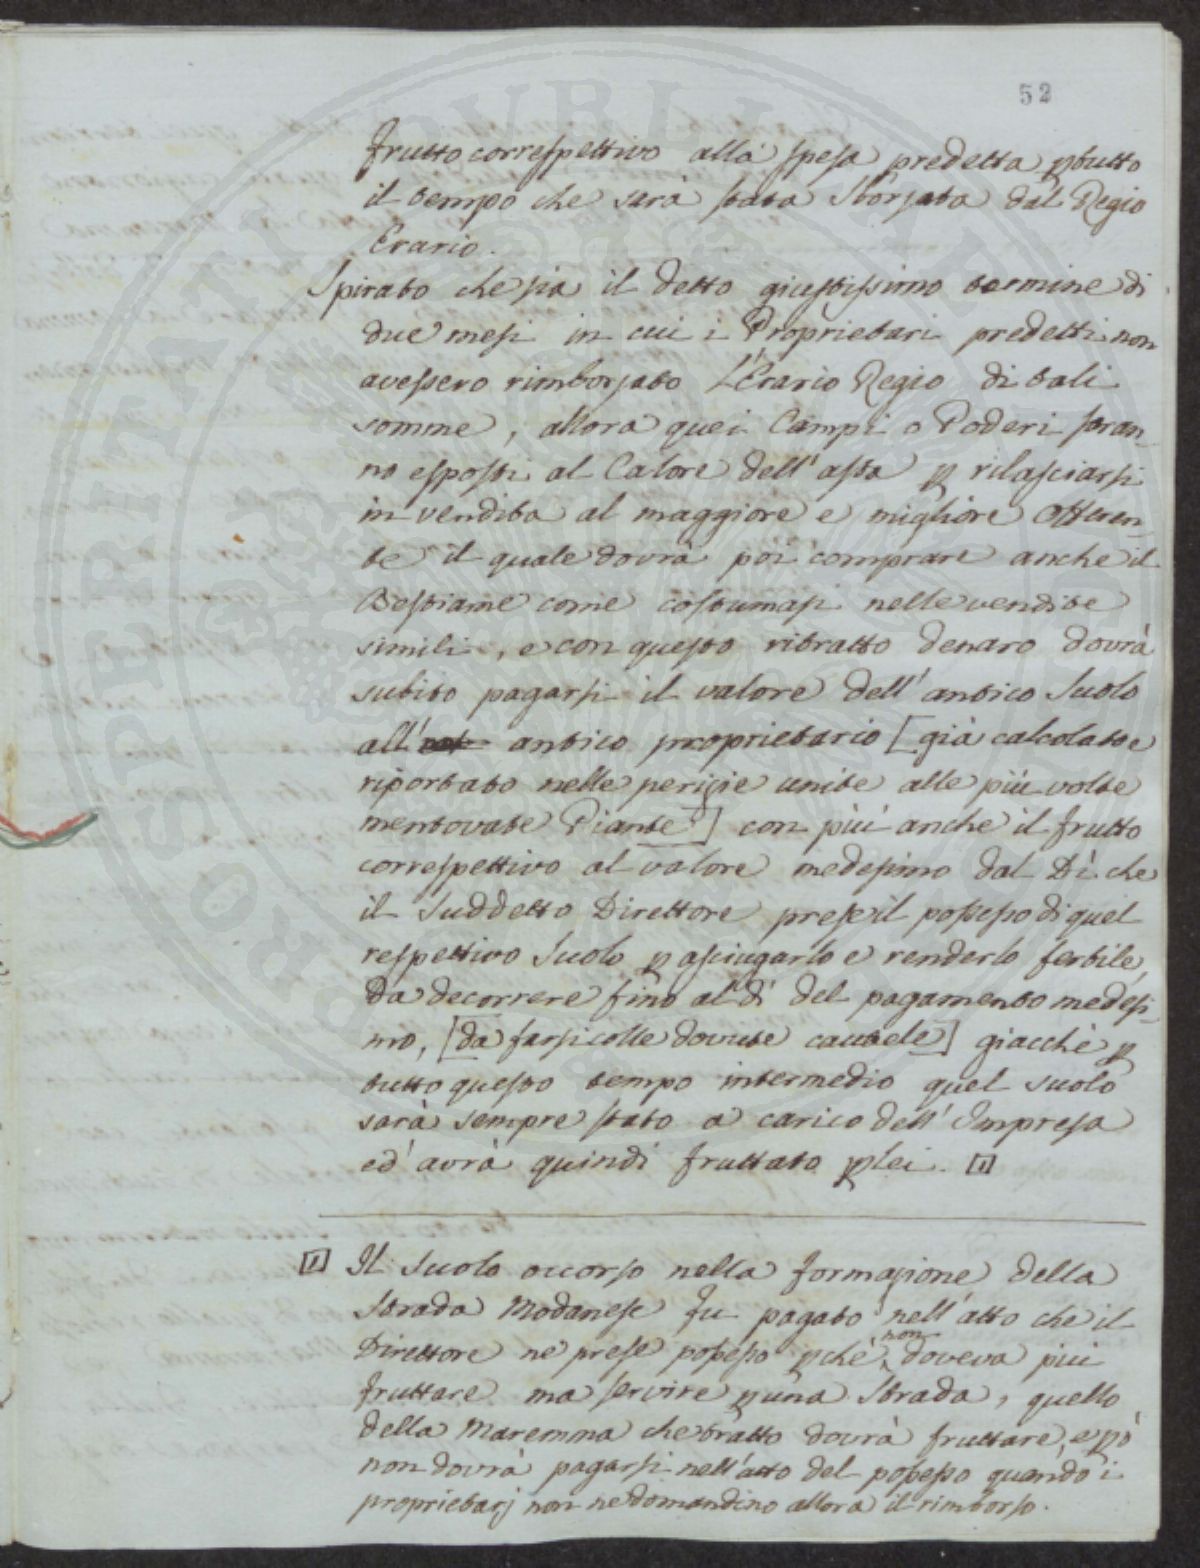 52
frutto correspettivo alla spesa predetta p tutto
il tempo che sarà stata sborsata dal Regio
Erario.
Spirato che sia il detto giustissimo termine di
due mesi in cui i Proprietari predetti non
avessero rimborsato l'Erario Regio di tali
somme, allora quei Campi o Poderi saran-
no esposti al Calore dell'asta p rilasciarsi
in vendita al maggiore e migliore Offeren-
te il quale dovrà poi comprare anche il
Bestiame come costumasi nelle vendite
simili, e con questo ritratto denaro dovrà
subito pagarsi il valore dell'antico suolo
all' antico proprietario [già calcolato e
riportato nelle perizie unite alle più volte
mentovate Piante] con più anche il frutto
correspettivo al valore medesimo dal Dì che
il Suddetto Direttore prese il possesso di quel
respettivo suolo p asciugarlo e renderlo fertile,
da decorrere fino al dì del pagamento medesi-
mo, [da farsi colle dovute cautele] giacchè p
tutto questo tempo intermedio quel suolo
sarà sempre stato a carico dell'Impresa
ed avrà quindi fruttato p lei. [1]
[1] Il suolo occorso nella formazione della
Strada Modanese fu pagato nell'atto che il
Direttore ne prese possesso pchè non doveva più
fruttare ma servire p una Strada, quello
della Maremma che tratto dovrà fruttare, e pò
non dovrà pagarsi nell'atto del possesso quando i
proprietarj non ne domandino allora il rimborso.
PROSPERITATI PVBLICAE